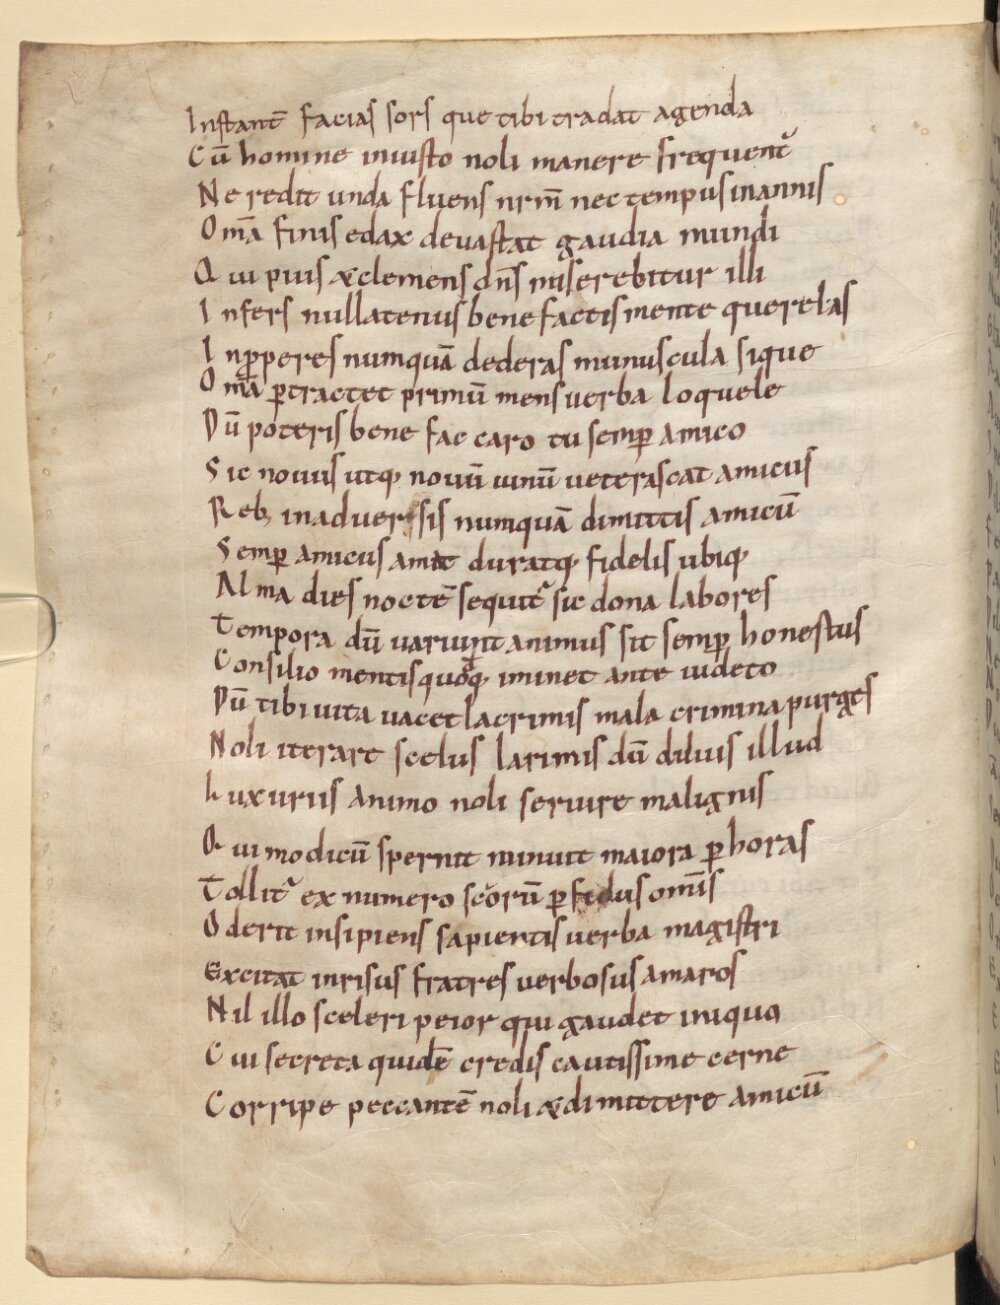 Instant̄ facias sors que tibi tradat agenda
Cū homine iniusto noli manere frequent᷑
Ne redit unda fluens nrm̄ nec tempus inannis
Om̄a finis edax devastat gaudia mundi
Qui pius & clemens dn̄s miserebitur illi
Infers nullatenus bene factis mente querelas
Inꝓperes numquā dederas munuscula sique
Om̄a ꝑtractet primū mens verba loquele
Dū poteris bene fac caro tu semꝑ amico
Sic novus utq; novū vinū veterascat amicus
Reb; in adversis numquā dimittis amicū
Semꝑ amicus amat duratq; fidelis ubiq;
Alma dies noctē sequit᷑ sic dona labores
Tempora dū variunt animus sit semꝑ honestus
Consilio mentis quoq; iminet ante videto
Dū tibi vita vacet lacrimis mala crimina purges
Noli iterare scelus larimis dū diluis illud
Luxuriis animo noli servire malignis
Qui modicū spernit minuit maiora ꝑ horas
Tollit᷑ ex numero sc̄orū ꝑfidus omīs
Oderit insipiens sapientis verba magistri
Excitat inrisus fratres verbosus amaros
Nil illo sceleri peior qui gaudet iniquo
Cui secreta quidē credis cautissime cerne
Corripe peccantē noli & dimittere amicū